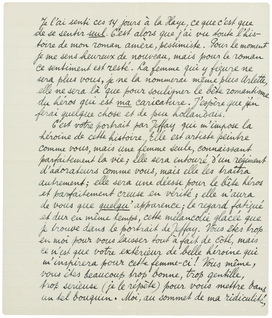 Je l'ai senti ces 14 jours à la Haye, ce que c'est que
de se sentir seul. C'est alors que j'ai vu toute l'his-
toire de mon roman amère, pessimiste. Pour le moment
je me sens heureux de nouveau, mais pour le roman
ce sentiment est resté. La femme qui y figure ne
sera plus vous, je ne la nommerai même plus Arlette,
elle ne sera là que pour souligner le bête romantisme
du héros qui est ma caricature. J'espère que j'en
ferai quelque chose et de peu hollandais.
C'est votre portrait par Jeffay qui m'impose la
héroïne de cette histoire. Elle est artiste peintre
comme vous, mais une femme seule, connaissant
parfaitement la vie; elle sera entouré d'un régiment
d'adorateurs comme vous, mais elle les traîtra
autrement; elle sera une déesse pour le bête héros
et parfaitement creuse en vérité; elle n'aura
de vous que quelqu' apparence, le regard fatigué
et dur en même temps, cette mélancolie glacée que
je trouve dans le portrait de Jeffay. Vous êtes trop
en moi pour vous laisser tout à fait de côté, mais
ce n'est que votre extérieur de belle héroine qui
m'inspirera pour cette femme-ci! Vous même,
vous êtes beaucoup trop bonne, trop gentille,
trop serieuse (je le répète) pour vous mettre dans
un tel bouquin. Moi, au sommet de ma ridiculité,